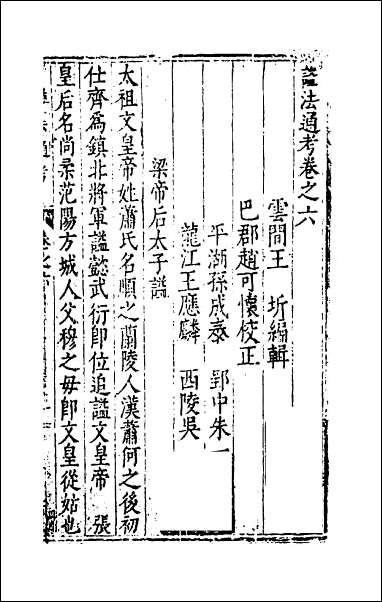 謚法通考卷之六
雲間王　圻編輯
巴郡趙可懷校正
平湖孫成泰　郢中朱一
龍江王應麟　西陵吳
梁帝后太子謚
太祖文皇帝姓蕭氏名順之蘭陵人漢蕭何之後初
仕齊為鎮北將軍謚懿武衍即位追謚文皇帝　張
皇后名尚柔范陽方城人父穆之母即文皇從姑也